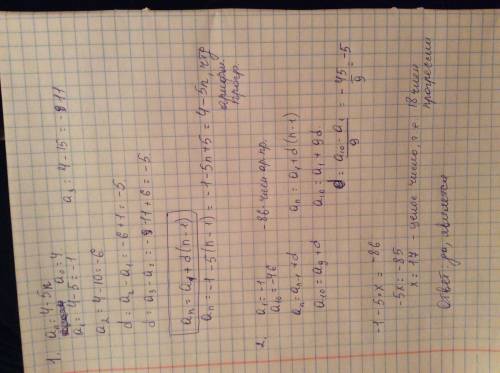 1. aₙ = 4 - 5n
a₀ = 4
a₁ = 4 - 5 = -1
a₂ = 4 - 10 = -6
a₃ = 4 - 15 = -11
d = a₂ - a₁ = -6 + 1 = -5
d = a₃ - a₂ = -11 + 6 = -5.
aₙ = a₁ + d(n-1)
aₙ = -1 - 5(n-1) = -1 - 5n + 5 = 4 - 5n, что
арифм
прогр.
2. a₁ = -1
a₁₀ = -46
-86 - член ар. пр.
aₙ = aₙ₋₁ + d
aₙ = a₁ + d(n-1)
a₁₀ = a₉ + d
a₁₀ = a₁ + 9d
d = (a₁₀ - a₁)/9 = -45/9 = -5
-1 - 5·x = -86
-5x = -85
x = 17 - целое число, т.е. 18 член
прогрессии
Ответ: да, является